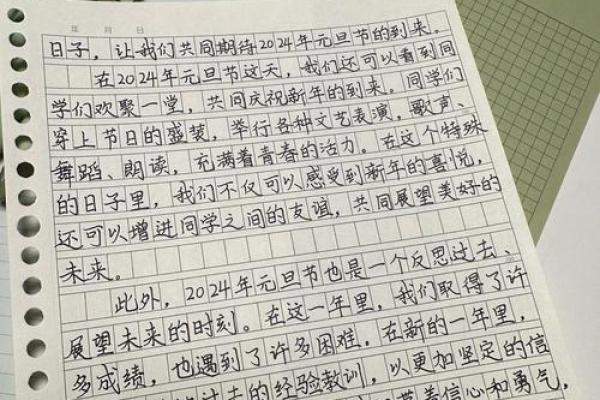 年 月 日
日子，让我们共同期待2024年元旦节的到来。
在2024年元旦节这天，我们还可以看到同
学们欢聚一堂，共同庆祝新年的到来。同学们
穿上节日的盛装，举行各种文艺表演，歌声、
舞蹈、朗读，充满着青春的活力。在这个特殊
的日子里，我们不仅可以感受到新年的喜悦，
还可以增进同学之间的友谊，共同展望美好的
未来。
此外，2024年元旦节也是一个反思过去、
展望未来的时刻。在这一年里，我们取得了许
多成绩，也遇到了许多困难，在新的一年里，
过去的经验教训，以更加坚定的信
着信心和勇气，